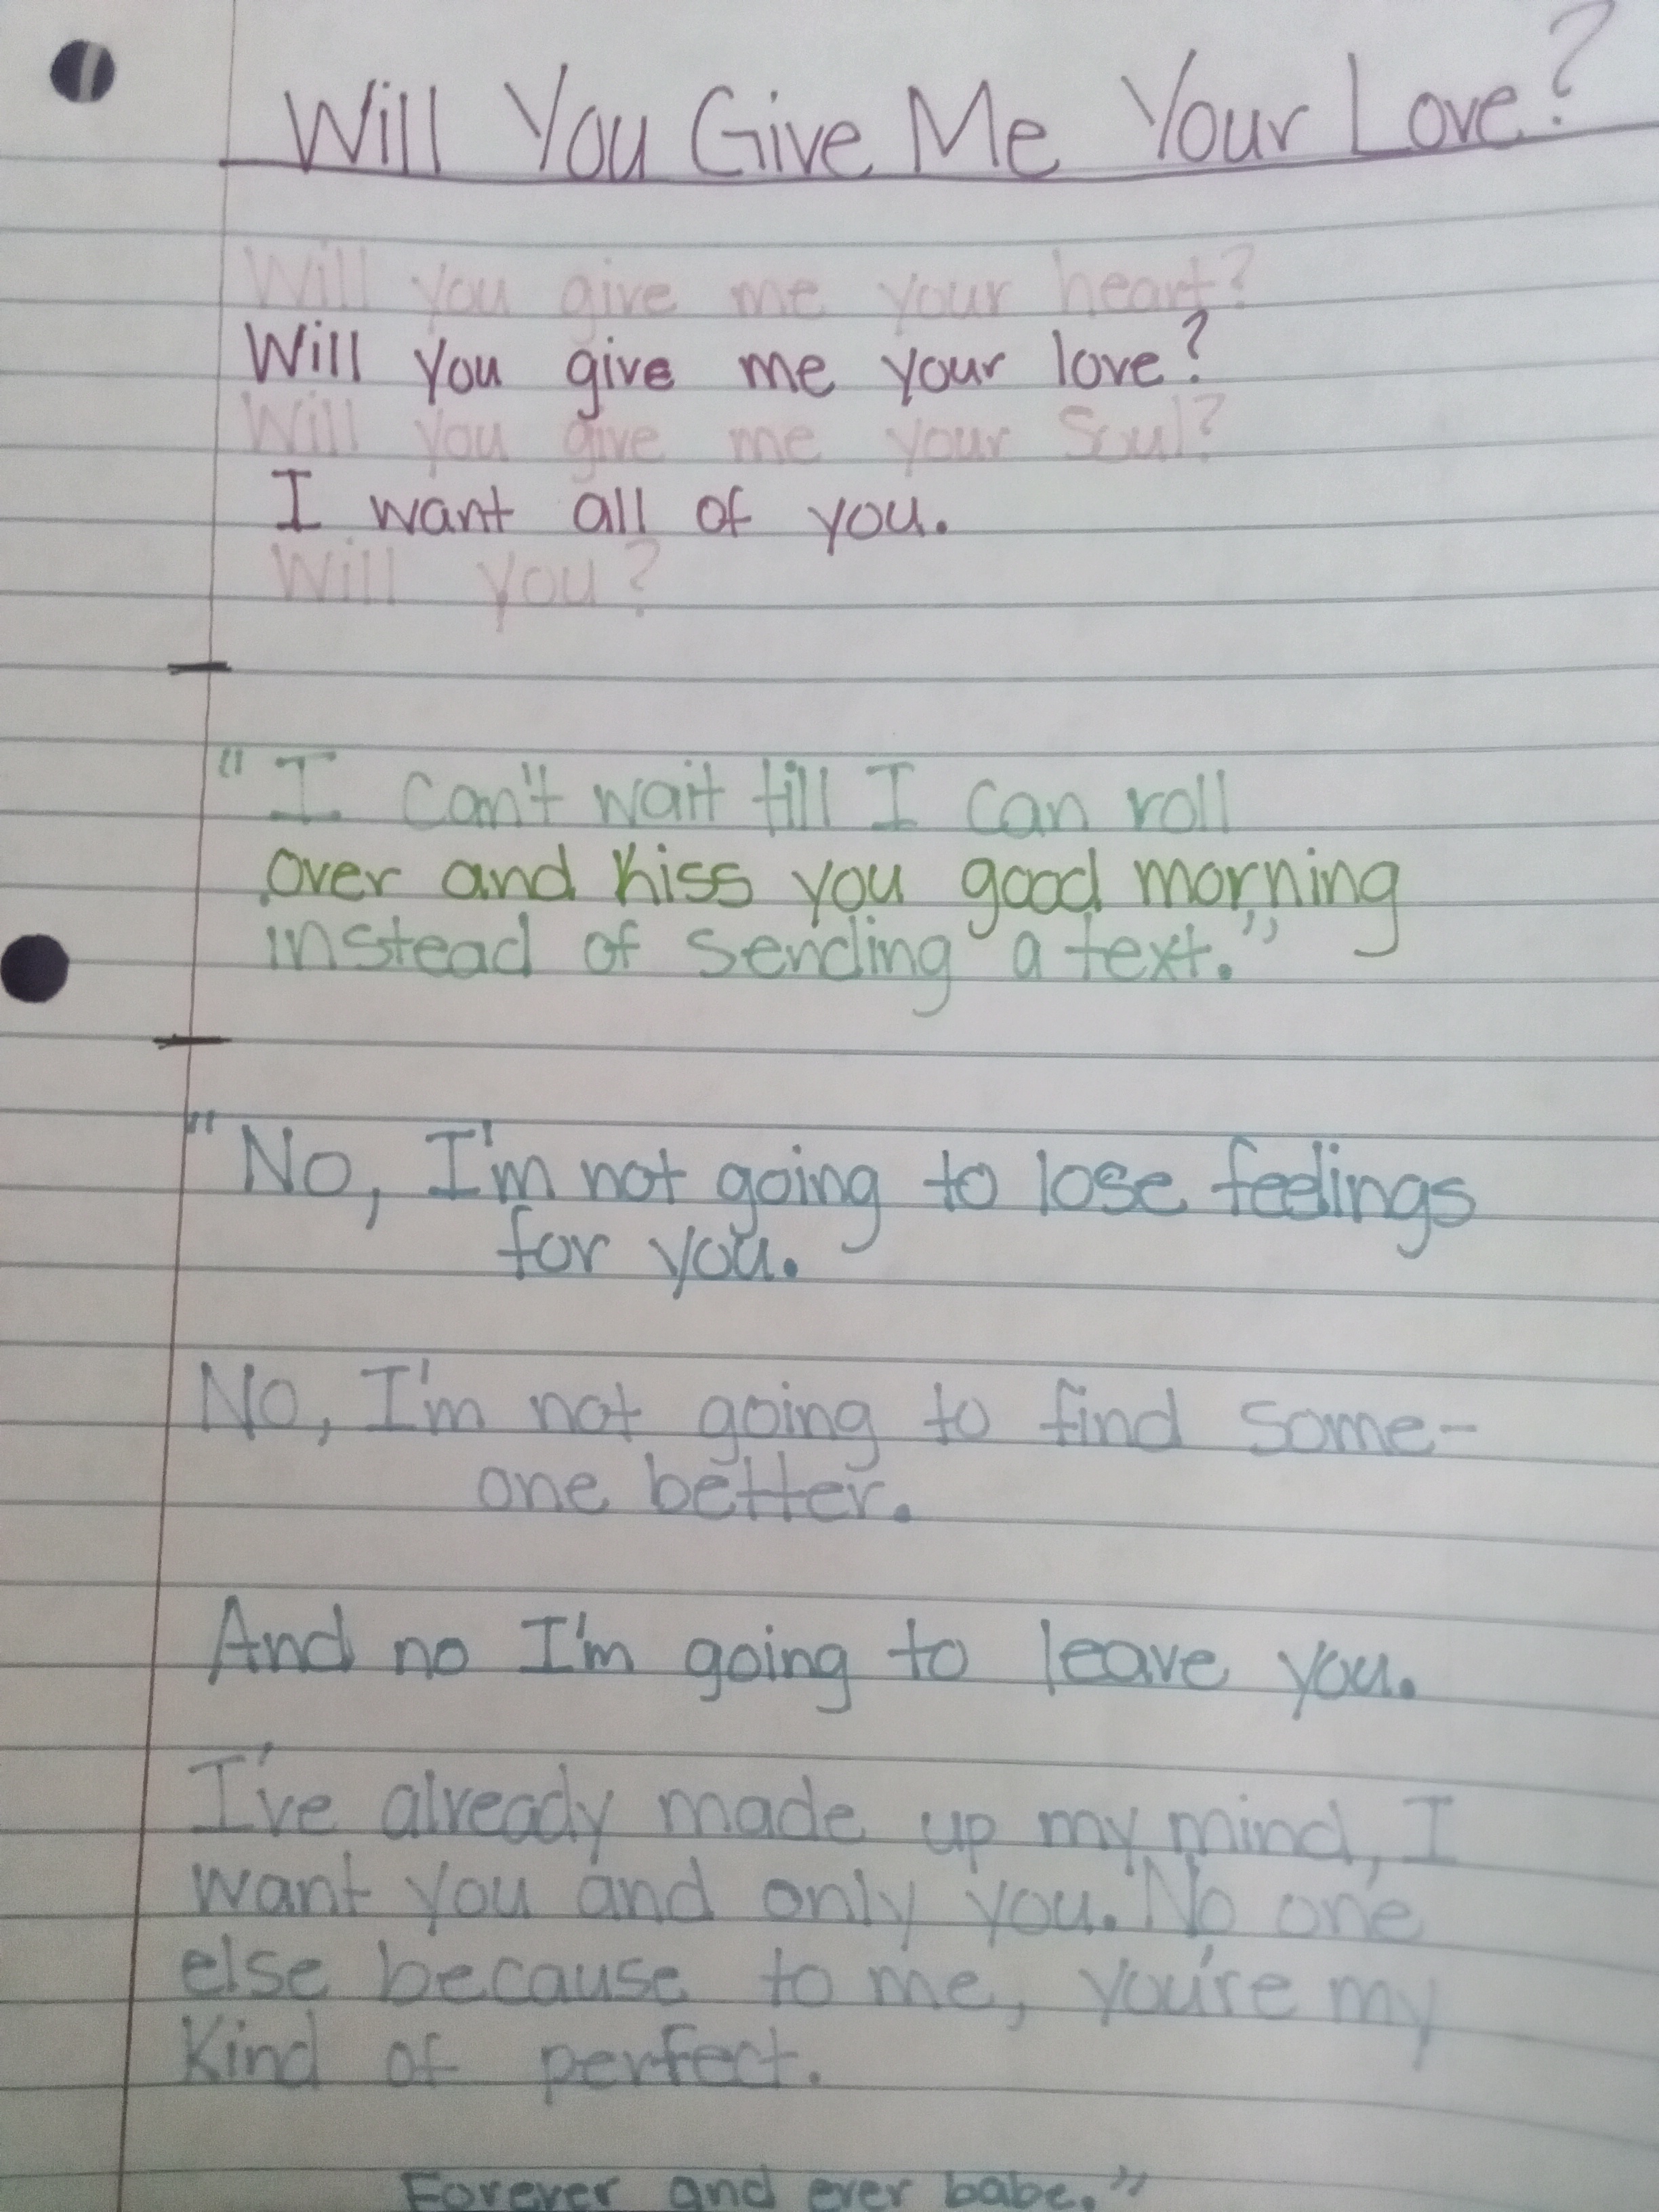 Will You Give Me Your Love?
Will you give me your heart?
Will you give me your love?
Will you give me your Soul?
I want all of you.
Will you?
"I can't wait till I can roll
over and kiss you good morning
instead of sending a text."
"No, I'm not going to lose feelings
for you.
No, I'm not going to find some-
one better.
And no I'm going to leave you.
I've already made up my mind, I
want you and only you. No one
else because to me, you're my
Kind of perfect.
Forever and ever babe."